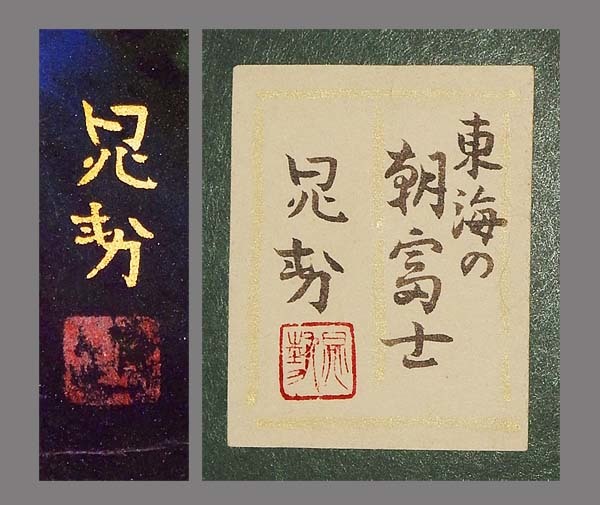 晁勢
東海の
朝富士
晁勢